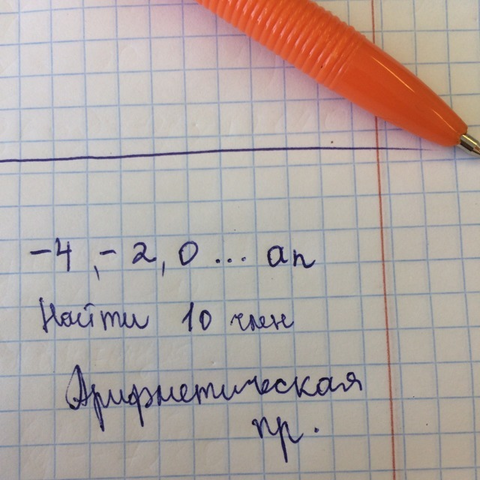 -4, -2, 0 ... an
Найти 10 член
Арифметическая
пр.